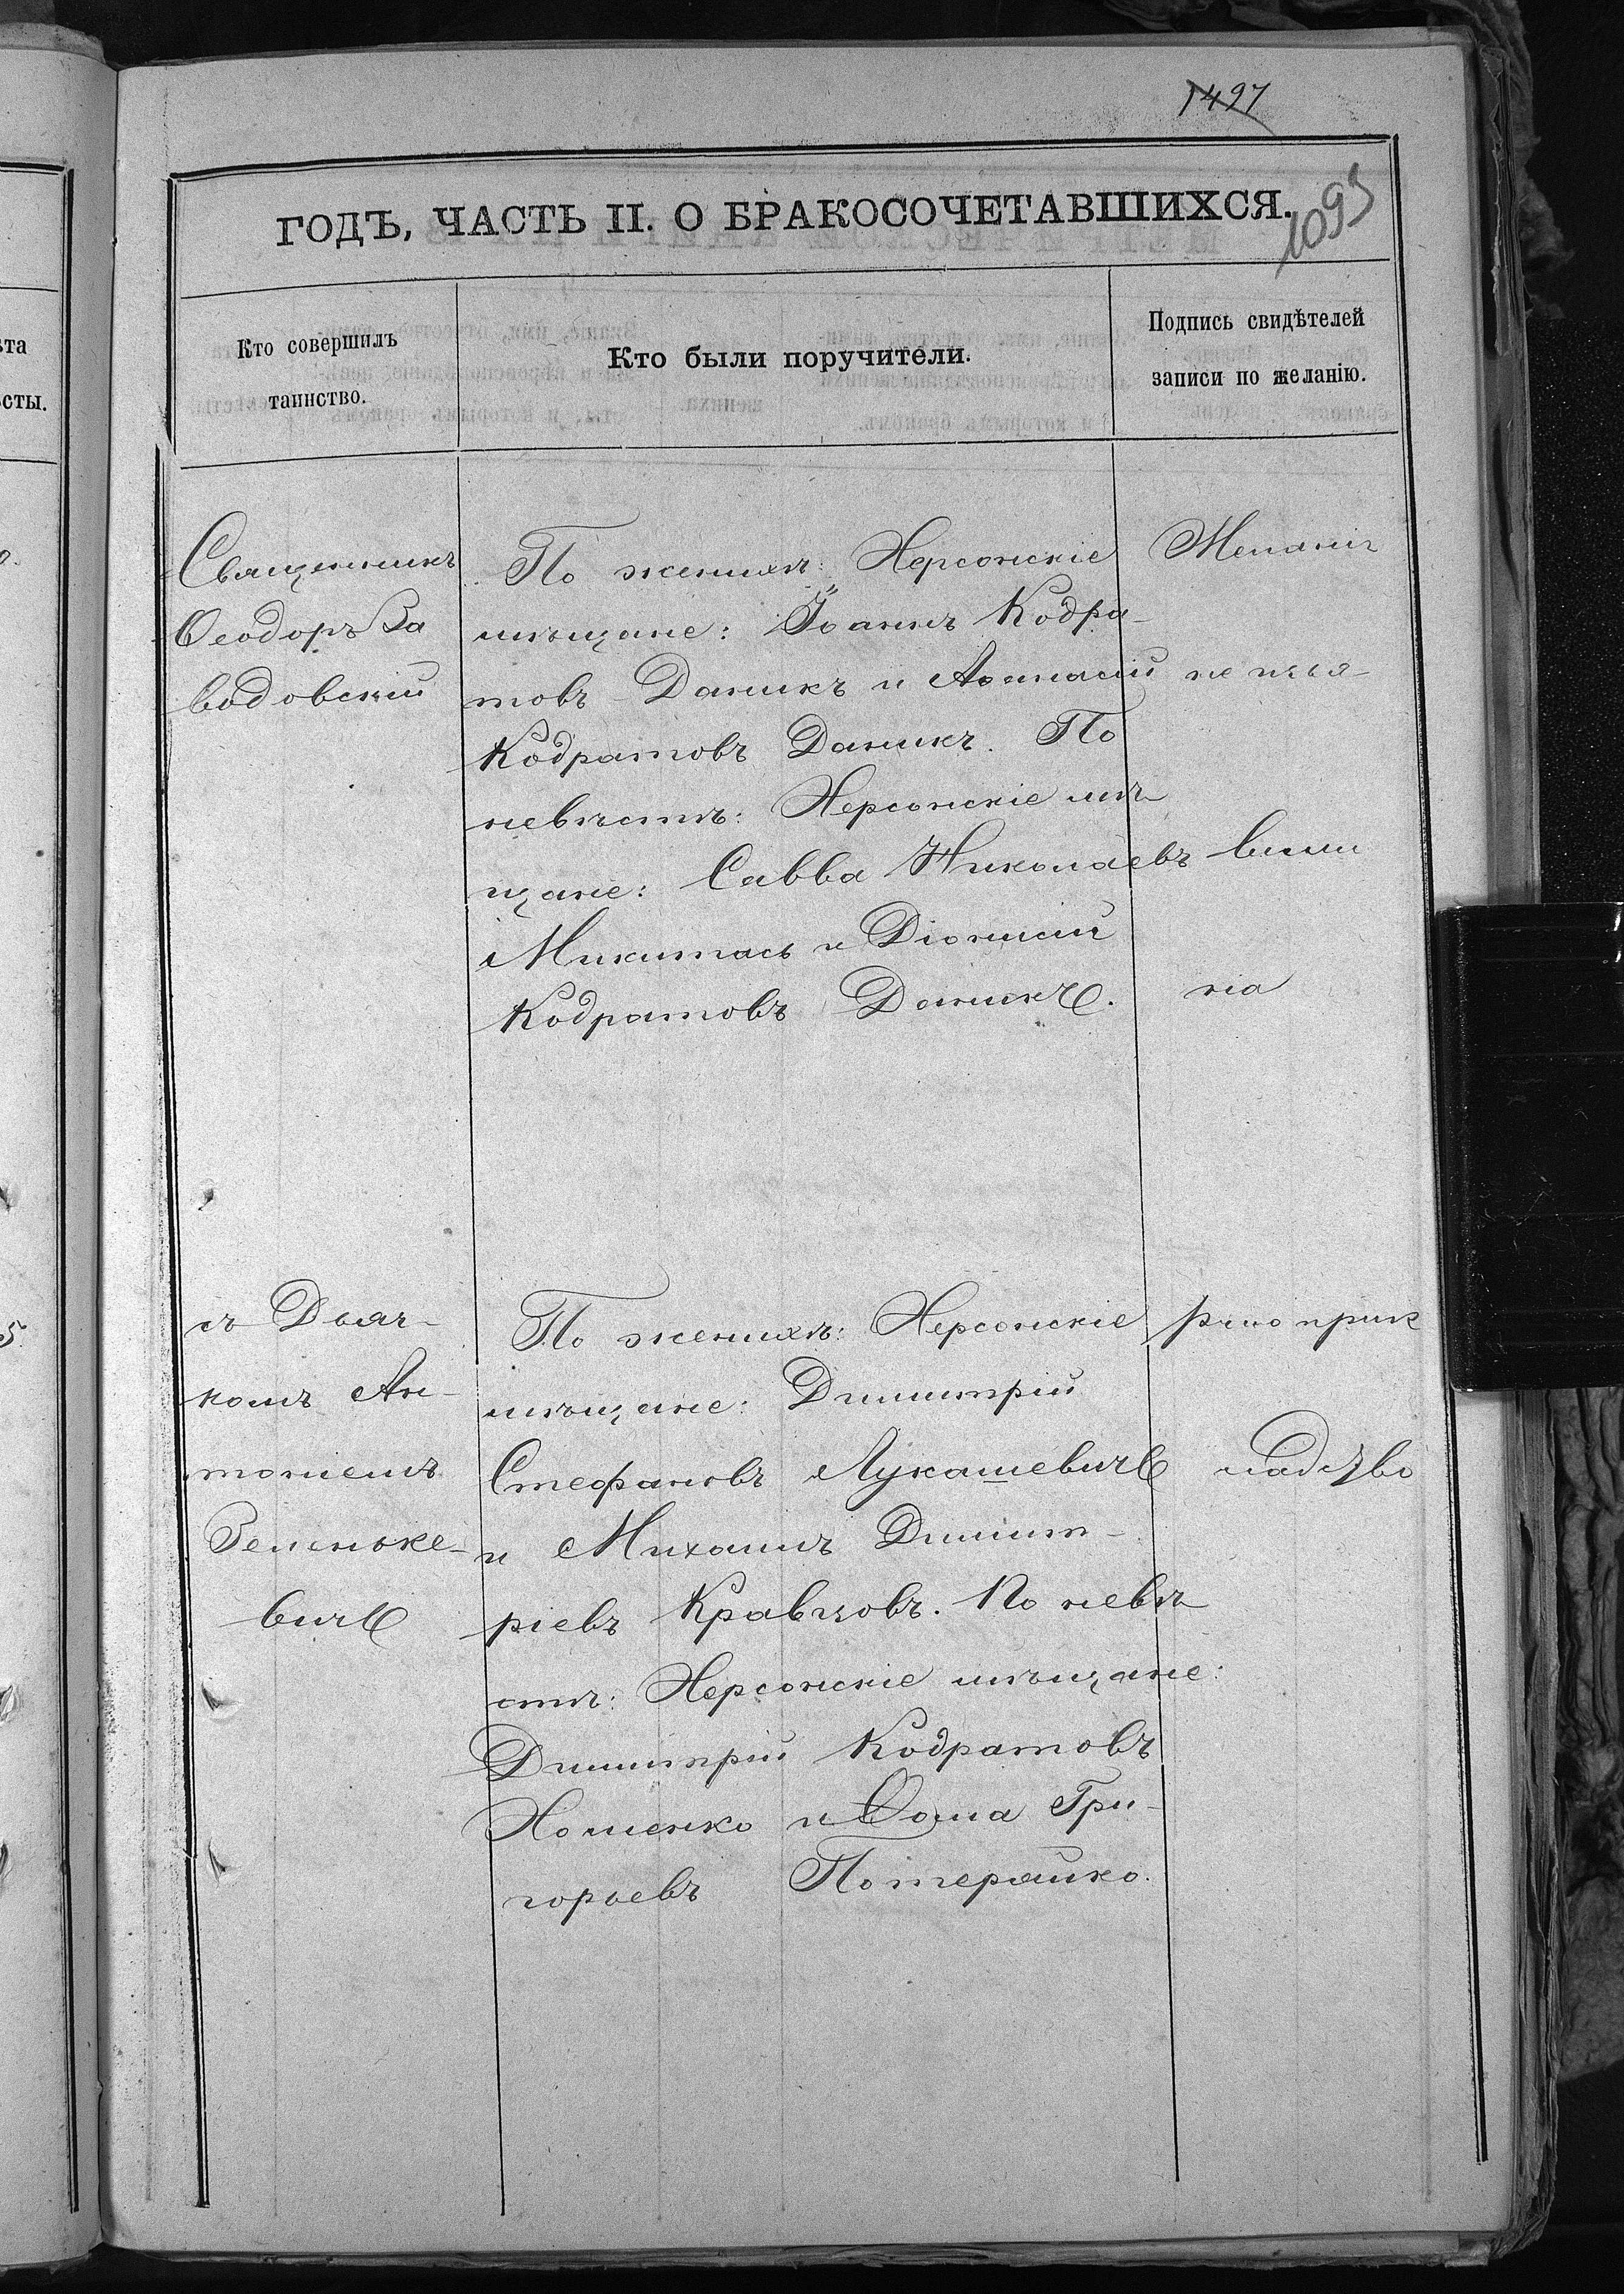 1497
1093
ГОДЪ, ЧАСТЬ II. О БРАКОСОЧЕТАВШИХСЯ.
Кто совершилъ
таинство.
Кто были поручители.
Подпись свидѣтелей
записи по желанію.
Священникъ
Ѳеодоръ За
водовскій
По женихѣ: Херсонскіе
мѣщане: Іоаннъ Кодра-
товъ Даникъ и Аѳанасій
Кодратовъ Даникъ. По
невѣстѣ: Херсонскіе мѣ-
щане: Савва Николаевъ
Микитась и Діонисій
Кодратовъ Даникъ.
Желанія
не изъя-
вили
съ Дьяч-
комъ Ан-
тоніемъ
Зеленьке-
вичъ
По женихѣ: Херсонскіе
мѣщане: Димитрій
Стефановъ Лукашевичъ
и Михаилъ Димит-
ріевъ Кравцовъ. По невѣ-
стѣ: Херсонскіе мѣщане:
Димитрій Кодратовъ
Хоменко и Ѳома Гри-
горьевъ Потерайко.
ѣта
ѣсты.